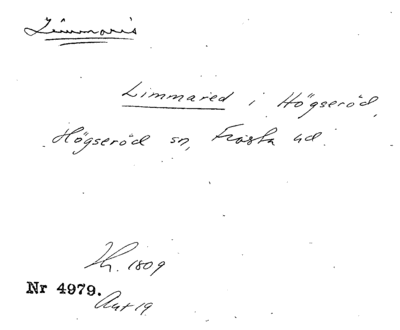 Limmaris
Limmared i Högseröd,
Högseröd sn, Frosta hd.
Th. 1809
Nr 4979.
Ant 19